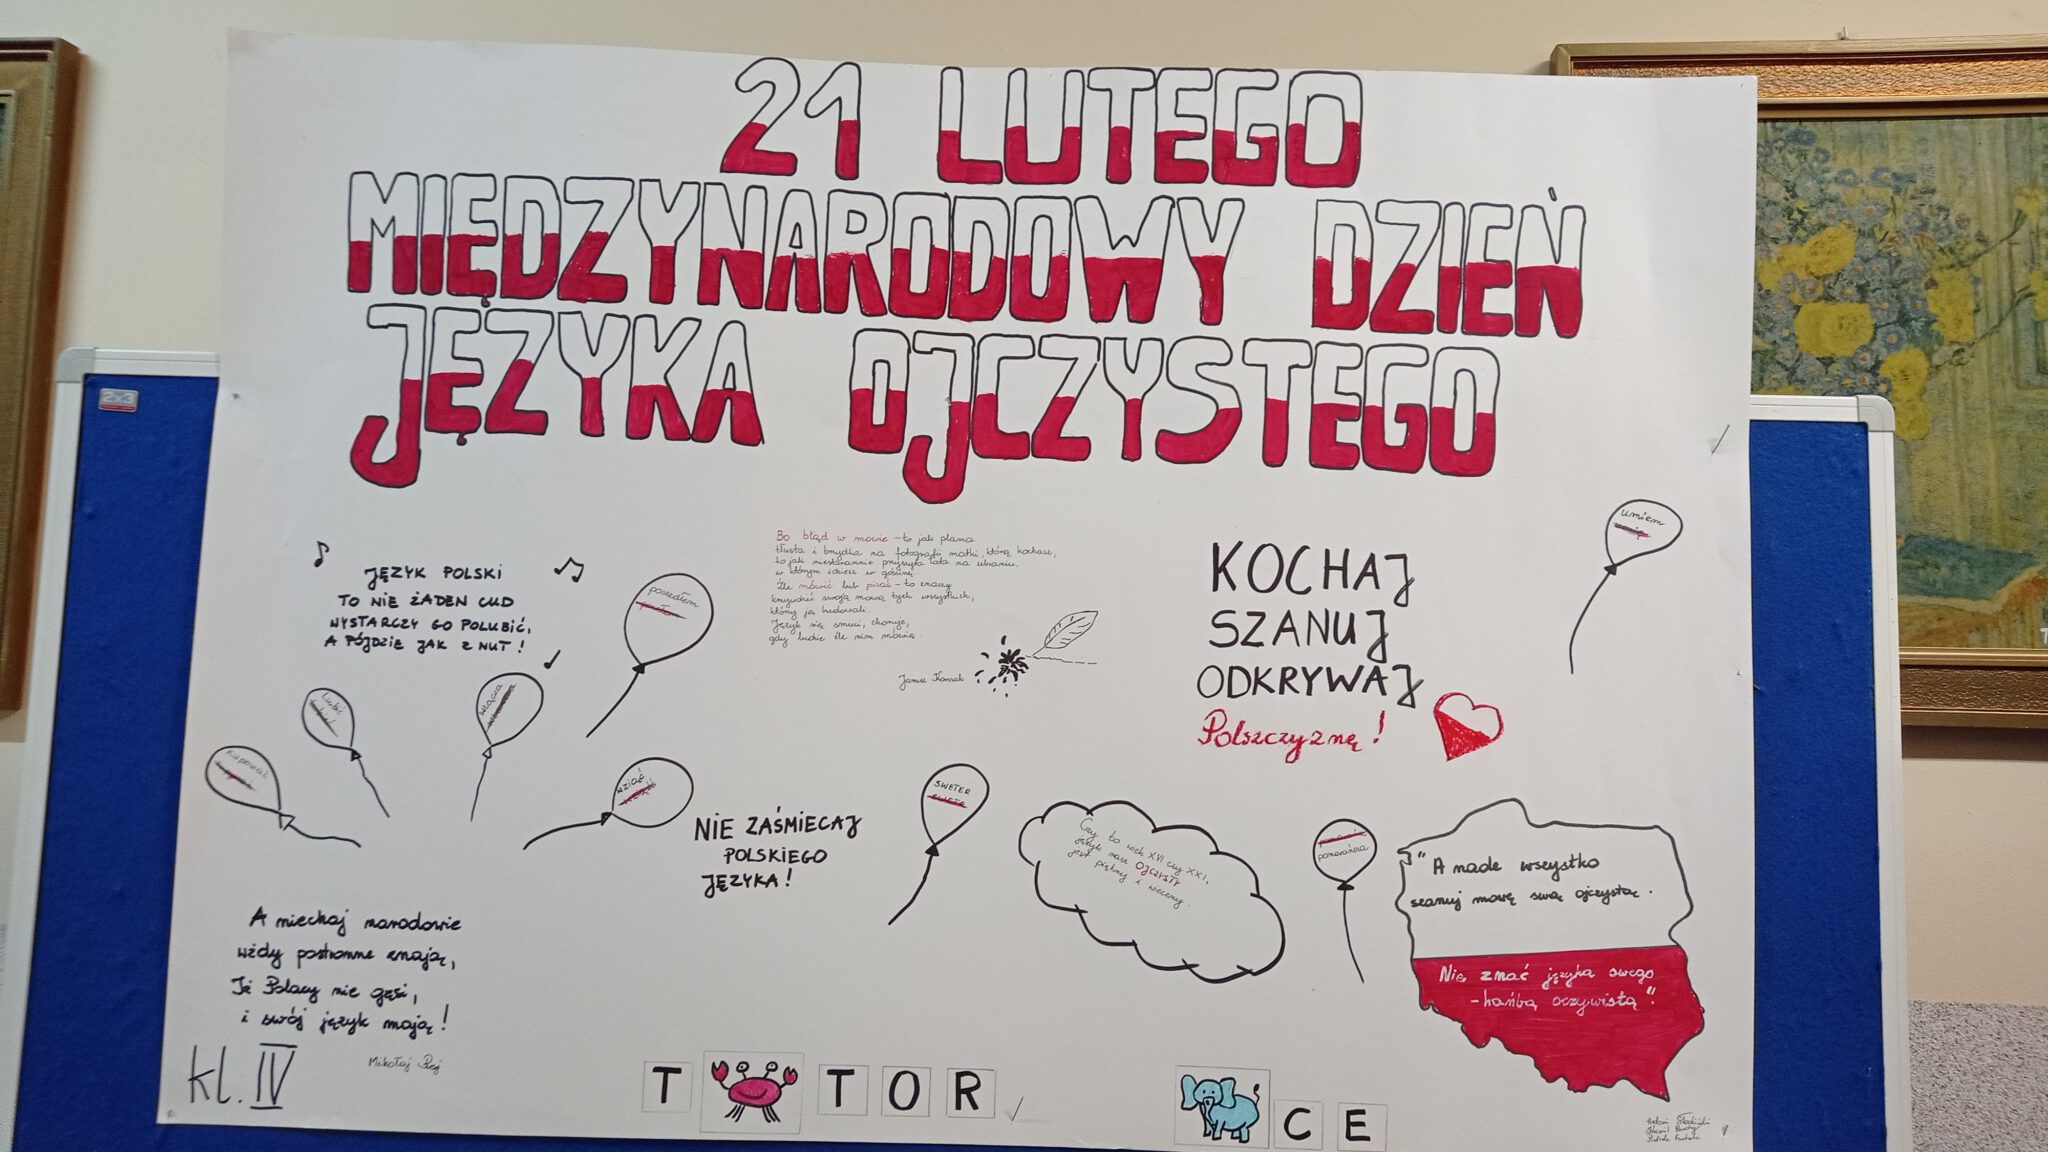 21 LUTEGO
MIĘDZYNARODOWY DZIEŃ
JĘZYKA OJCZYSTEGO
2x3
JĘZYK POLSKI
TO NIE ŻADEN CUD
WYSTARCZY GO POLUBIĆ,
A PÓJDZIE JAK Z NUT!
poszedłem
Bo błąd w mowie - to jak plama
tłusta i brzydka na fotografii matki, którą kochasz,
to jak niestarannie przyszyta łata na ubraniu,
w którym idziesz w gościnę.
Źle mówić lub pisać - to znaczy
krzywdzić swoją mową tych wszystkich,
którzy ją budowali.
Język się smuci, choruje,
gdy ludzie źle nim mówią.
Janusz Korczak
KOCHAJ
SZANUJ
ODKRYWAJ
Polszczyznę!
umiem
lubić
włącza
kupować
wziąć
NIE ZAŚMIECAJ
POLSKIEGO
JĘZYKA!
SWETER
Czy to wiek XVI czy XXI,
język nasz OJCZYSTY
jest piękny i wieczny.
pomarańcza
"A nade wszystko
szanuj mowę swą ojczystą.
Nie znać języka swego
- hańbą oczywistą"!
A niechaj narodowie
wżdy postronne znają,
Iż Polacy nie gęsi,
i swój język mają!
Mikołaj Rej
kl. IV
T TOR
CE